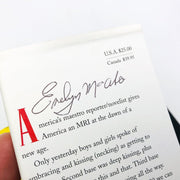 U.S.A. $25.00
Canada $39.95
Evelyn
America's maestro reporter/novelist gives
America an MRI at the dawn of a
new age.
Only yesterday boys and girls spoke of
embracing and kissing (necking) as getting to
Second base was deep kissing, plus
this and that. Third base
all the way.